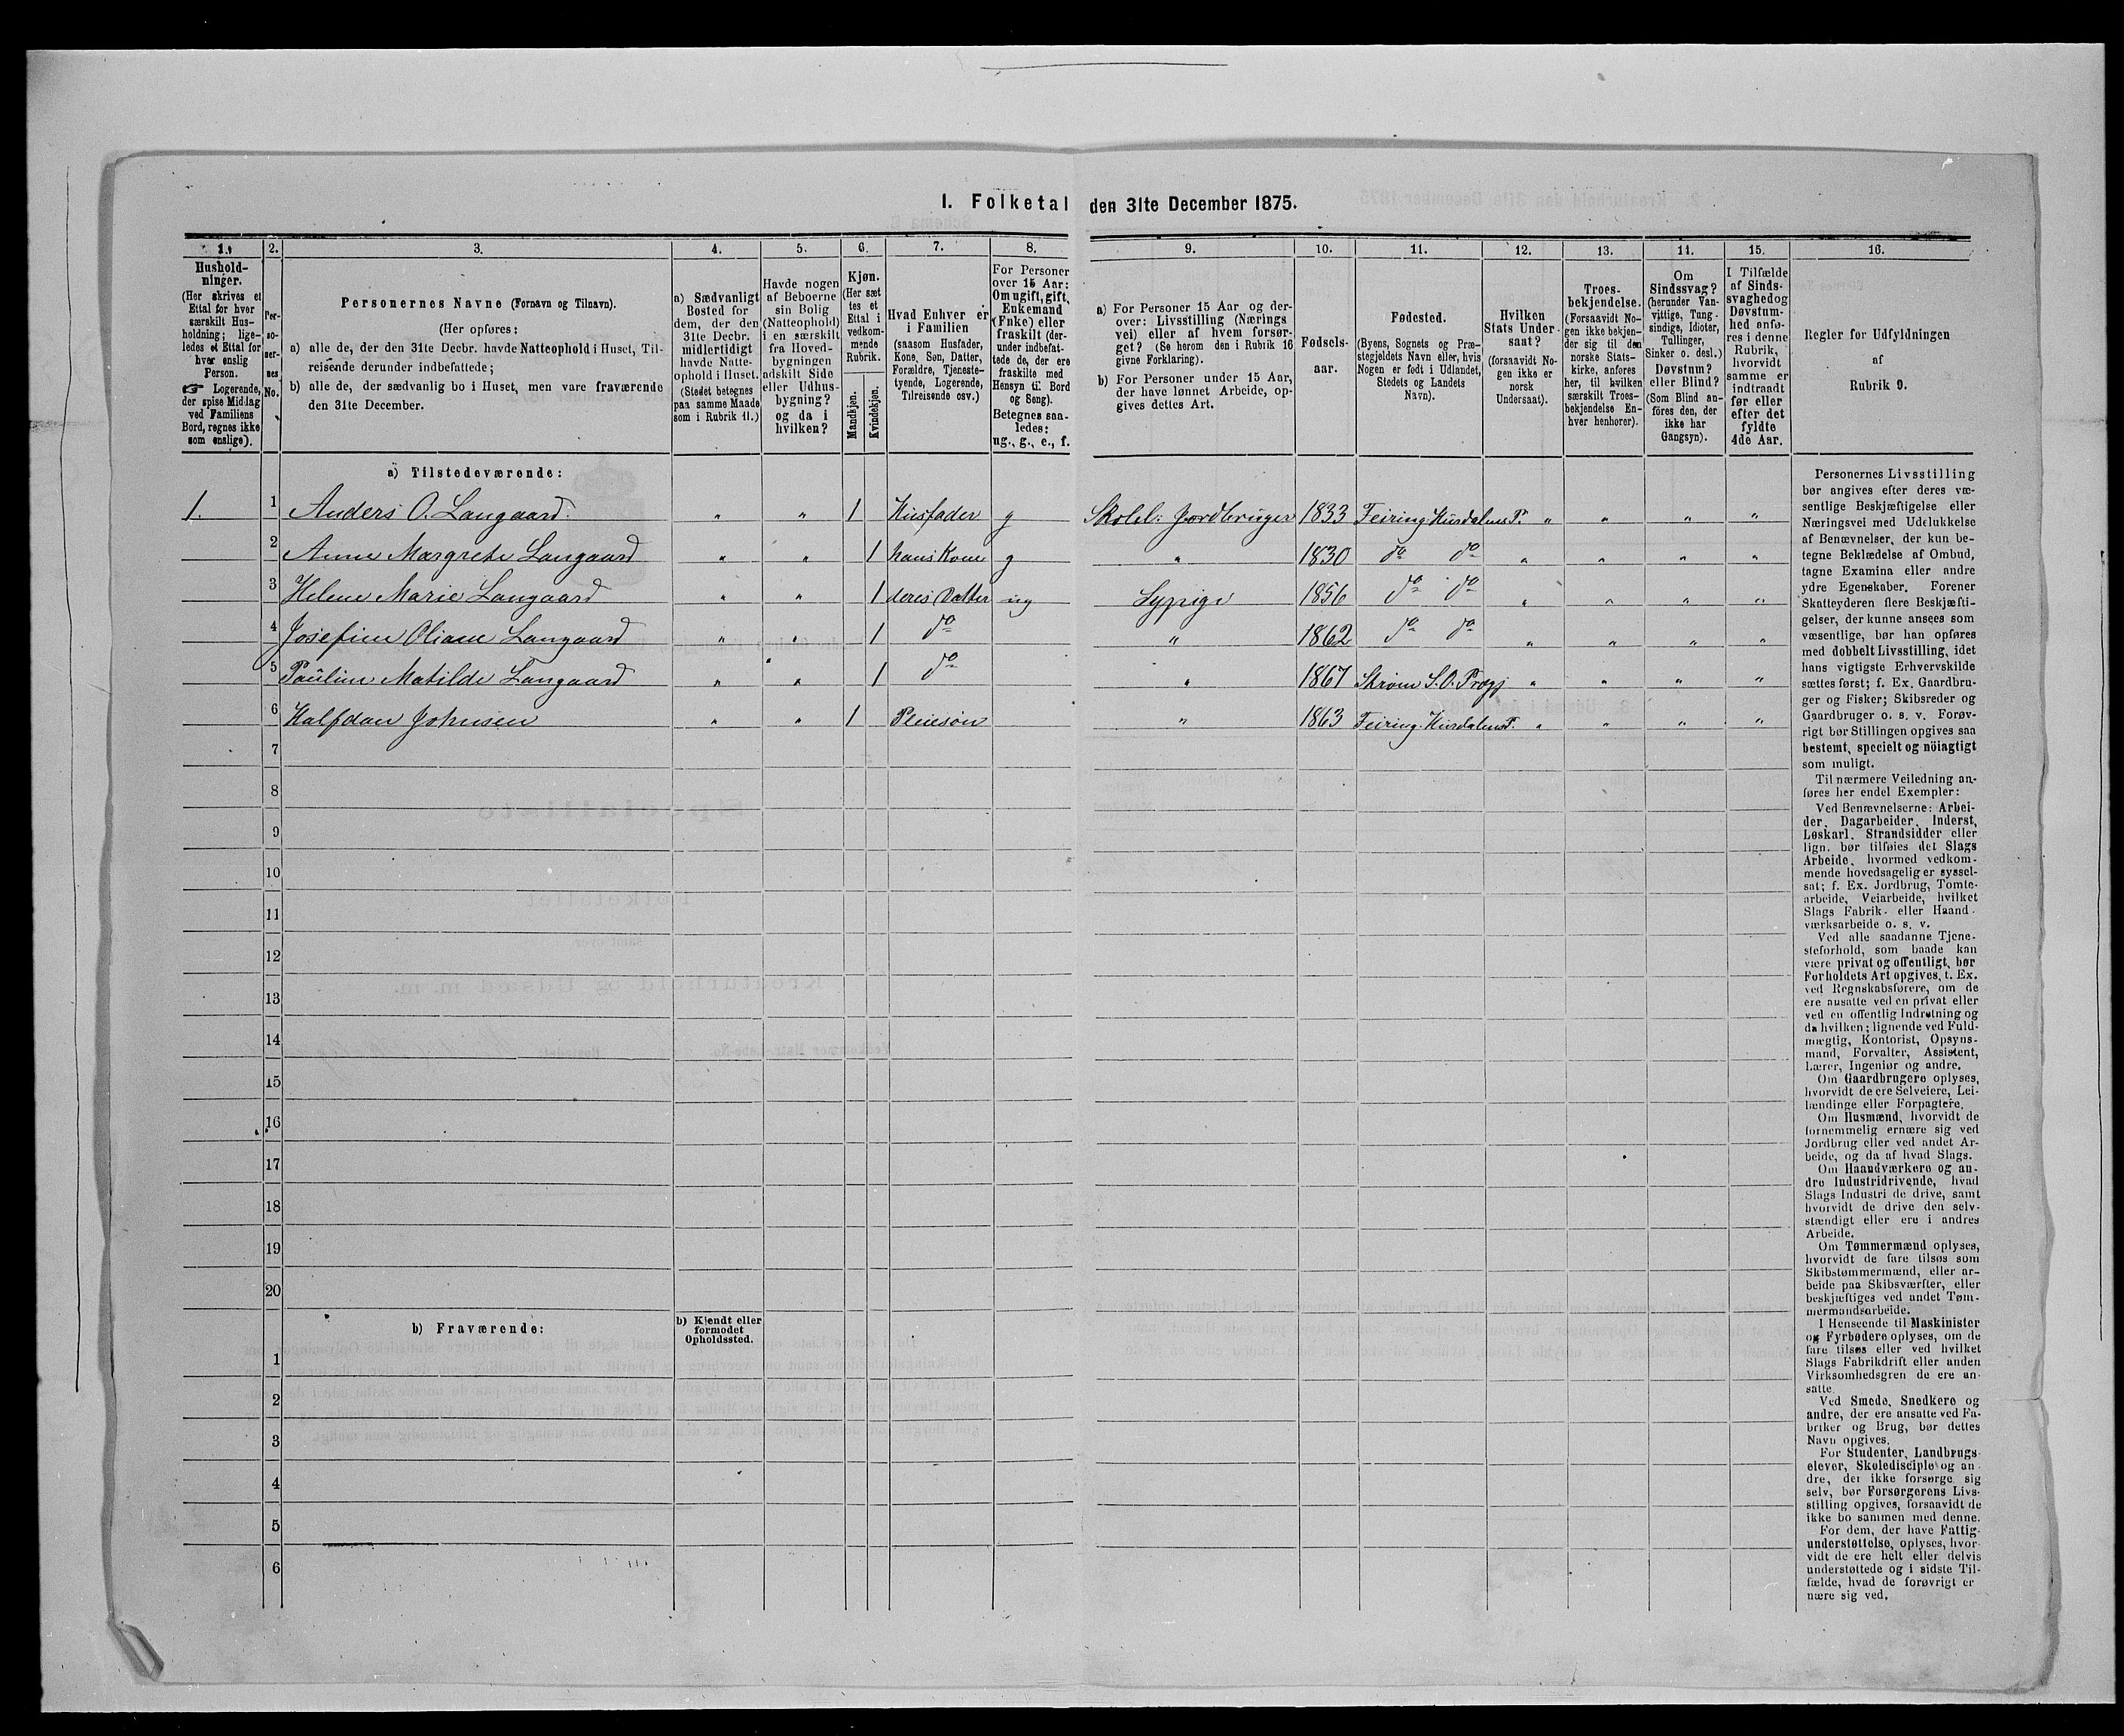 I. Folketal den 31te December 1875.
1. 2. 3. 4. 5. 6. 7. 8. 9. 10. 11. 12. 13. 14. 15. 16.
Hushold-
ninger.
(Her skrives et
Ettal for hver
særskilt Hus-
holdning; lige-
ledes et Ettal for
hver enslig
Person.
☞ Logerende,
der spise Middag
ved Familiens
Bord, regnes ikke
som enslige).
Per-
so-
ner-
nes
No.
Personernes Navne (Fornavn og Tilnavn).
(Her opføres:
a) alle de, der den 31te Decbr. havde Natteophold i Huset, Til-
reisende derunder indbefattede;
b) alle de, der sædvanlig bo i Huset, men vare fraværende
den 31te December.
a) Sædvanligt
Bosted for
dem, der den
31te Decbr.
midlertidigt
havde Natte-
ophold i Huset.
(Stedet betegnes
paa samme Maade
som i Rubrik 11.)
Havde nogen
af Beboerne
sin Bolig
(Natteophold)
i en særskilt
fra Hoved-
bygningen
adskilt Side
eller Udhus-
bygning?
og da i
hvilken?
Kjøn.
(Her sæt
tes et
Ettal i
vedkom-
mende
Rubrik.
Mandkjøn.
Kvindekjøn.
Hvad Enhver er
i Familien
(saasom Husfader,
Kone, Søn, Datter,
Forældre, Tjeneste-
tyende, Logerende,
Tilreisende osv.)
For Personer
over 15 Aar:
Om ugift, gift,
Enkemand
(Enke) eller
fraskilt (der-
under indbefat-
tede de, der ere
fraskilte med
Hensyn til Bord
og Seng).
Betegnes saa-
ledes:
ug., g., e., f.
a) For Personer 15 Aar og der-
over: Livsstilling (Nærings
vei) eller af hvem forsør-
get? (Se herom den i Rubrik 16
givne Forklaring).
b) For Personer under 15 Aar,
der have lønnet Arbeide, op-
gives dettes Art.
Fødsels-
aar.
Fødested.
(Byens, Sognets og Præ-
stegjeldets Navn eller, hvis
Nogen er født i Udlandet,
Stedets og Landets
Navn).
Hvilken
Stats Under-
saat?
(forsaavidt No-
gen ikke er
norsk
Undersaat).
Troes-
bekjendelse.
(Forsaavidt No-
gen ikke bekjen-
der sig til den
norske Stats-
kirke, anføres
her, til hvilken
særskilt Troes-
bekjendelse En-
hver henhører).
Om
Sindssvag?
(herunder Van-
vittige, Tung-
sindige, Idioter,
Tullinger,
Sinker o. desl.)
Døvstum?
eller Blind?
(Som Blind an-
föres den, der
ikke har
Gangsyn).
I Tilfælde
af Sinds-
svaghed og
Døvstum-
hed anfø-
res i denne
Rubrik,
hvorvidt
samme er
indtraadt
før eller
efter det
fyldte
4de Aar.
Regler for Udfyldningen
af
Rubrik 9.
a) Tilstedeværende:
1. 1 Anders O. Langaard. " " 1 Husfader g Skolel. Jordbruger 1833 Feiring Hurdalens P. " " " "
2 Anne Margrete Langaard " " 1 hans Kone g " 1830 do do " " " "
3 Helene Marie Langaard " " 1 deres Datter ug Sypige 1856 do do " " " "
4 Josefine Oliane Langaard " " 1 do " 1862 do do " " " "
5 Pauline Matilde Langaard " " 1 do " 1867 Strøm S.O. Prgj " " " "
6 Halfdan Johnsen " " 1 Pleiesøn " 1863 Feiring Hurdalens P. " " " "
7
8
9
10
11
12
13
14
15
16
17
18
19
20
b) Fraværende:
b) Kjendt eller
formodet
Opholdssted.
1
2
3
4
5
6
Personernes Livsstilling
bør angives efter deres væ-
sentlige Beskjæftigelse eller
Næringsvei med Udelukkelse
af Benævnelser, der kun be-
tegne Beklædelse af Ombud,
tagne Examina eller andre
ydre Egenskaber. Forener
Skatteyderen flere Beskjæfti-
gelser, der kunne ansees som
væsentlige, bør han opføres
med dobbelt Livsstilling, idet
hans vigtigste Erhvervskilde
sættes først; f. Ex. Gaardbru-
ger og Fisker; Skibsreder og
Gaardbruger o. s. v. Forøv-
rigt bør Stillingen opgives saa
bestemt, specielt og nöiagtigt
som muligt.
Til nærmere Veiledning an-
føres her endel Exempler:
Ved Benævnelserne: Arbei-
der, Dagarbeider, Inderst,
Løskarl, Strandsidder eller
lign. bør tilføies det Slags
Arbeide, hvormed vedkom-
mende hovedsagelig er syssel-
sat; f. Ex. Jordbrug, Tomte-
arbeide, Veiarbeide, hvilket
Slags Fabrik- eller Haand-
værksarbeide o. s. v.
Ved alle saadanne Tjene-
steforhold, som baade kan
være privat og offentligt, bør
Forholdets Art opgives, t. Ex.
ved Regnskabsførere, om de
ere ansatte ved en privat eller
ved en offentlig Indretning og
da hvilken; lignende ved Fuld-
mægtig, Kontorist, Opsyns-
mand, Forvalter, Assistent,
Lærer, Ingeniør og andre.
Om Gaardbrugere oplyses,
hvorvidt de ere Selveiere, Lei-
lændinge eller Forpagtere.
Om Husmænd, hvorvidt de
fornemmelig ernære sig ved
Jordbrug eller ved andet Ar-
beide, og da af hvad Slags.
Om Haandværkere og an-
dre Industridrivende, hvad
Slags Industri de drive, samt
hvorvidt de drive den selv-
stændigt eller ere i andres
Arbeide.
Om Tømmermænd oplyses,
hvorvidt de fare tilsøs som
Skibstømmermænd, eller ar-
beide paa Skibsværfter, eller
beskjæftiges ved andet Tøm-
mermandsarbeide.
I Henseende til Maskinister
og Fyrbødere oplyses, om de
fare tilsøs eller ved hvilket
Slags Fabrikdrift eller anden
Virksomhedsgren de ere an-
satte.
Ved Smede, Snedkere og
andre, der ere ansatte ved Fa-
briker og Brug, bør dettes
Navn opgives.
For Studenter, Landbrugs-
elever, Skoledisciple og an-
dre, der ikke forsørge sig
selv, bør Forsørgerens Livs-
stilling opgives, forsaavidt de
ikke bo sammen med denne.
For dem, der have Fattig-
understøttelse, oplyses, hvor-
vidt de ere helt eller delvis
understøttede og i sidste Til-
fælde, hvad de forøvrigt er
nære sig ved.